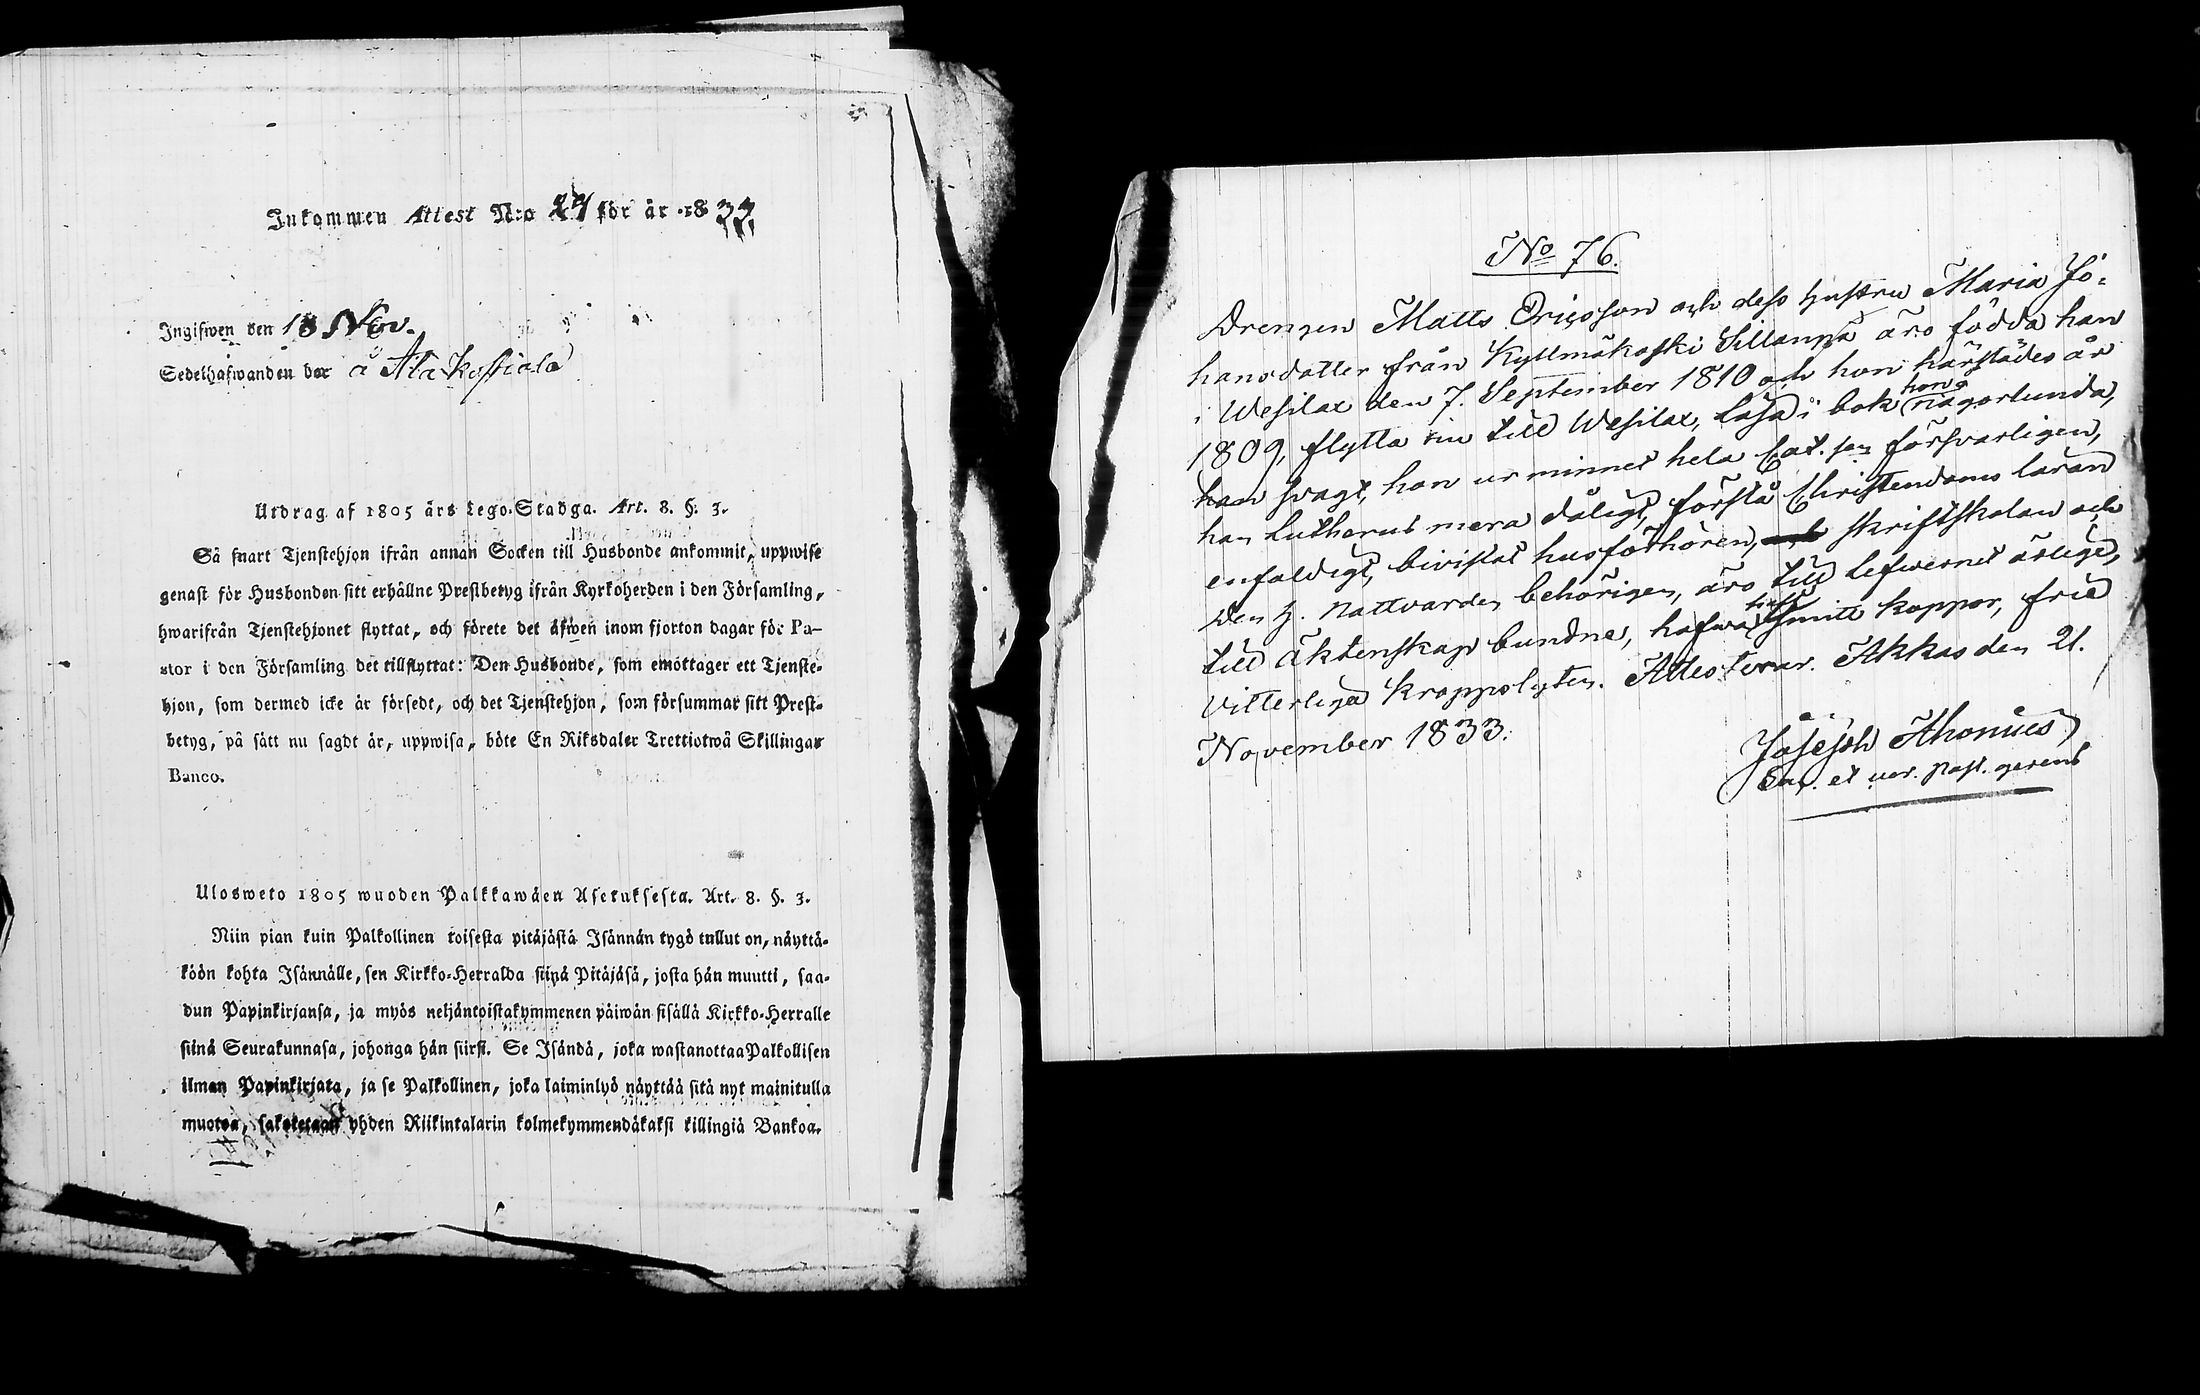 Inkommen Attest N:o 27 för år 1833.
Ingifwen den 18 Nov.
Sedelhafwanden bor å Ala Koskiala
Utdrag af 1805 års Lego-Stadga. Art. 8. §. 3.
Så snart Tjenstehjon ifrån annan Socken till Husbonde ankommit, uppwise
genast för Husbonden sitt erhållne Prestbetyg ifrån Kyrkoherden i den Församling,
hwarifrån Tjenstehjonet flyttat, och förete det äfwen inom fjorton dagar för Pa-
stor i den Församling det tillflyttat: Den Husbonde, som emottager ett Tjenste-
hjon, som dermed icke är försedt, och det Tjenstehjon, som försummar sitt Prest-
betyg, på sätt nu sagdt är, uppwisa, böte En Riksdaler Trettiotwå Skillingar
Banco.
Ulosweto 1805 wuoden Palkkawäen Asetuksesta. Art. 8. §. 3.
Niin pian kuin Palkollinen toisesta pitäjästä Isännän tygö tullut on, näyttä-
köön kohta Isännälle, sen Kirkko-Herralda siinä Pitäjäsä, josta hän muutti, saa-
dun Papinkirjansa, ja myös neljäntoistakymmenen päiwän sisällä Kirkko-Herralle
siinä Seurakunnasa, johonga hän siirsi. Se Isändä, joka wastanottaa Palkollisen
ilman Papinkirjata, ja se Palkollinen, joka laiminlyö näyttää sitä nyt mainitulla
muotoa, sakoitetaan yhden Riikintalarin kolmekymmendäkaksi killingiä Bankoa.
No 76.
Drengen Matts Ericsson och dess hustru Maria Jo-
hansdotter från Kyllmäkoski Sillanpä äro födda han
i Wesilax den 7. September 1810 och hon härstädes år
1809, flytta nu till Wesilax, läsa i bok hon någorlunda,
han svagt, hon ur minnet hela Cat.sen försvarligen,
han Lutherus mera dåligt, förstå Christendoms läran
enfaldigt, bivistat husförhören, skriftskolan och
den H. Nattvarden behörigen, äro till lefwernet ärlige,
till äktenskap bundne, hafwa haft smitt koppor, frie
vitterliga kroppslyten. Attesterar. Akkas den 21.
November 1833.
Josejoh Ahonius
Sac. et ver. past. gerens